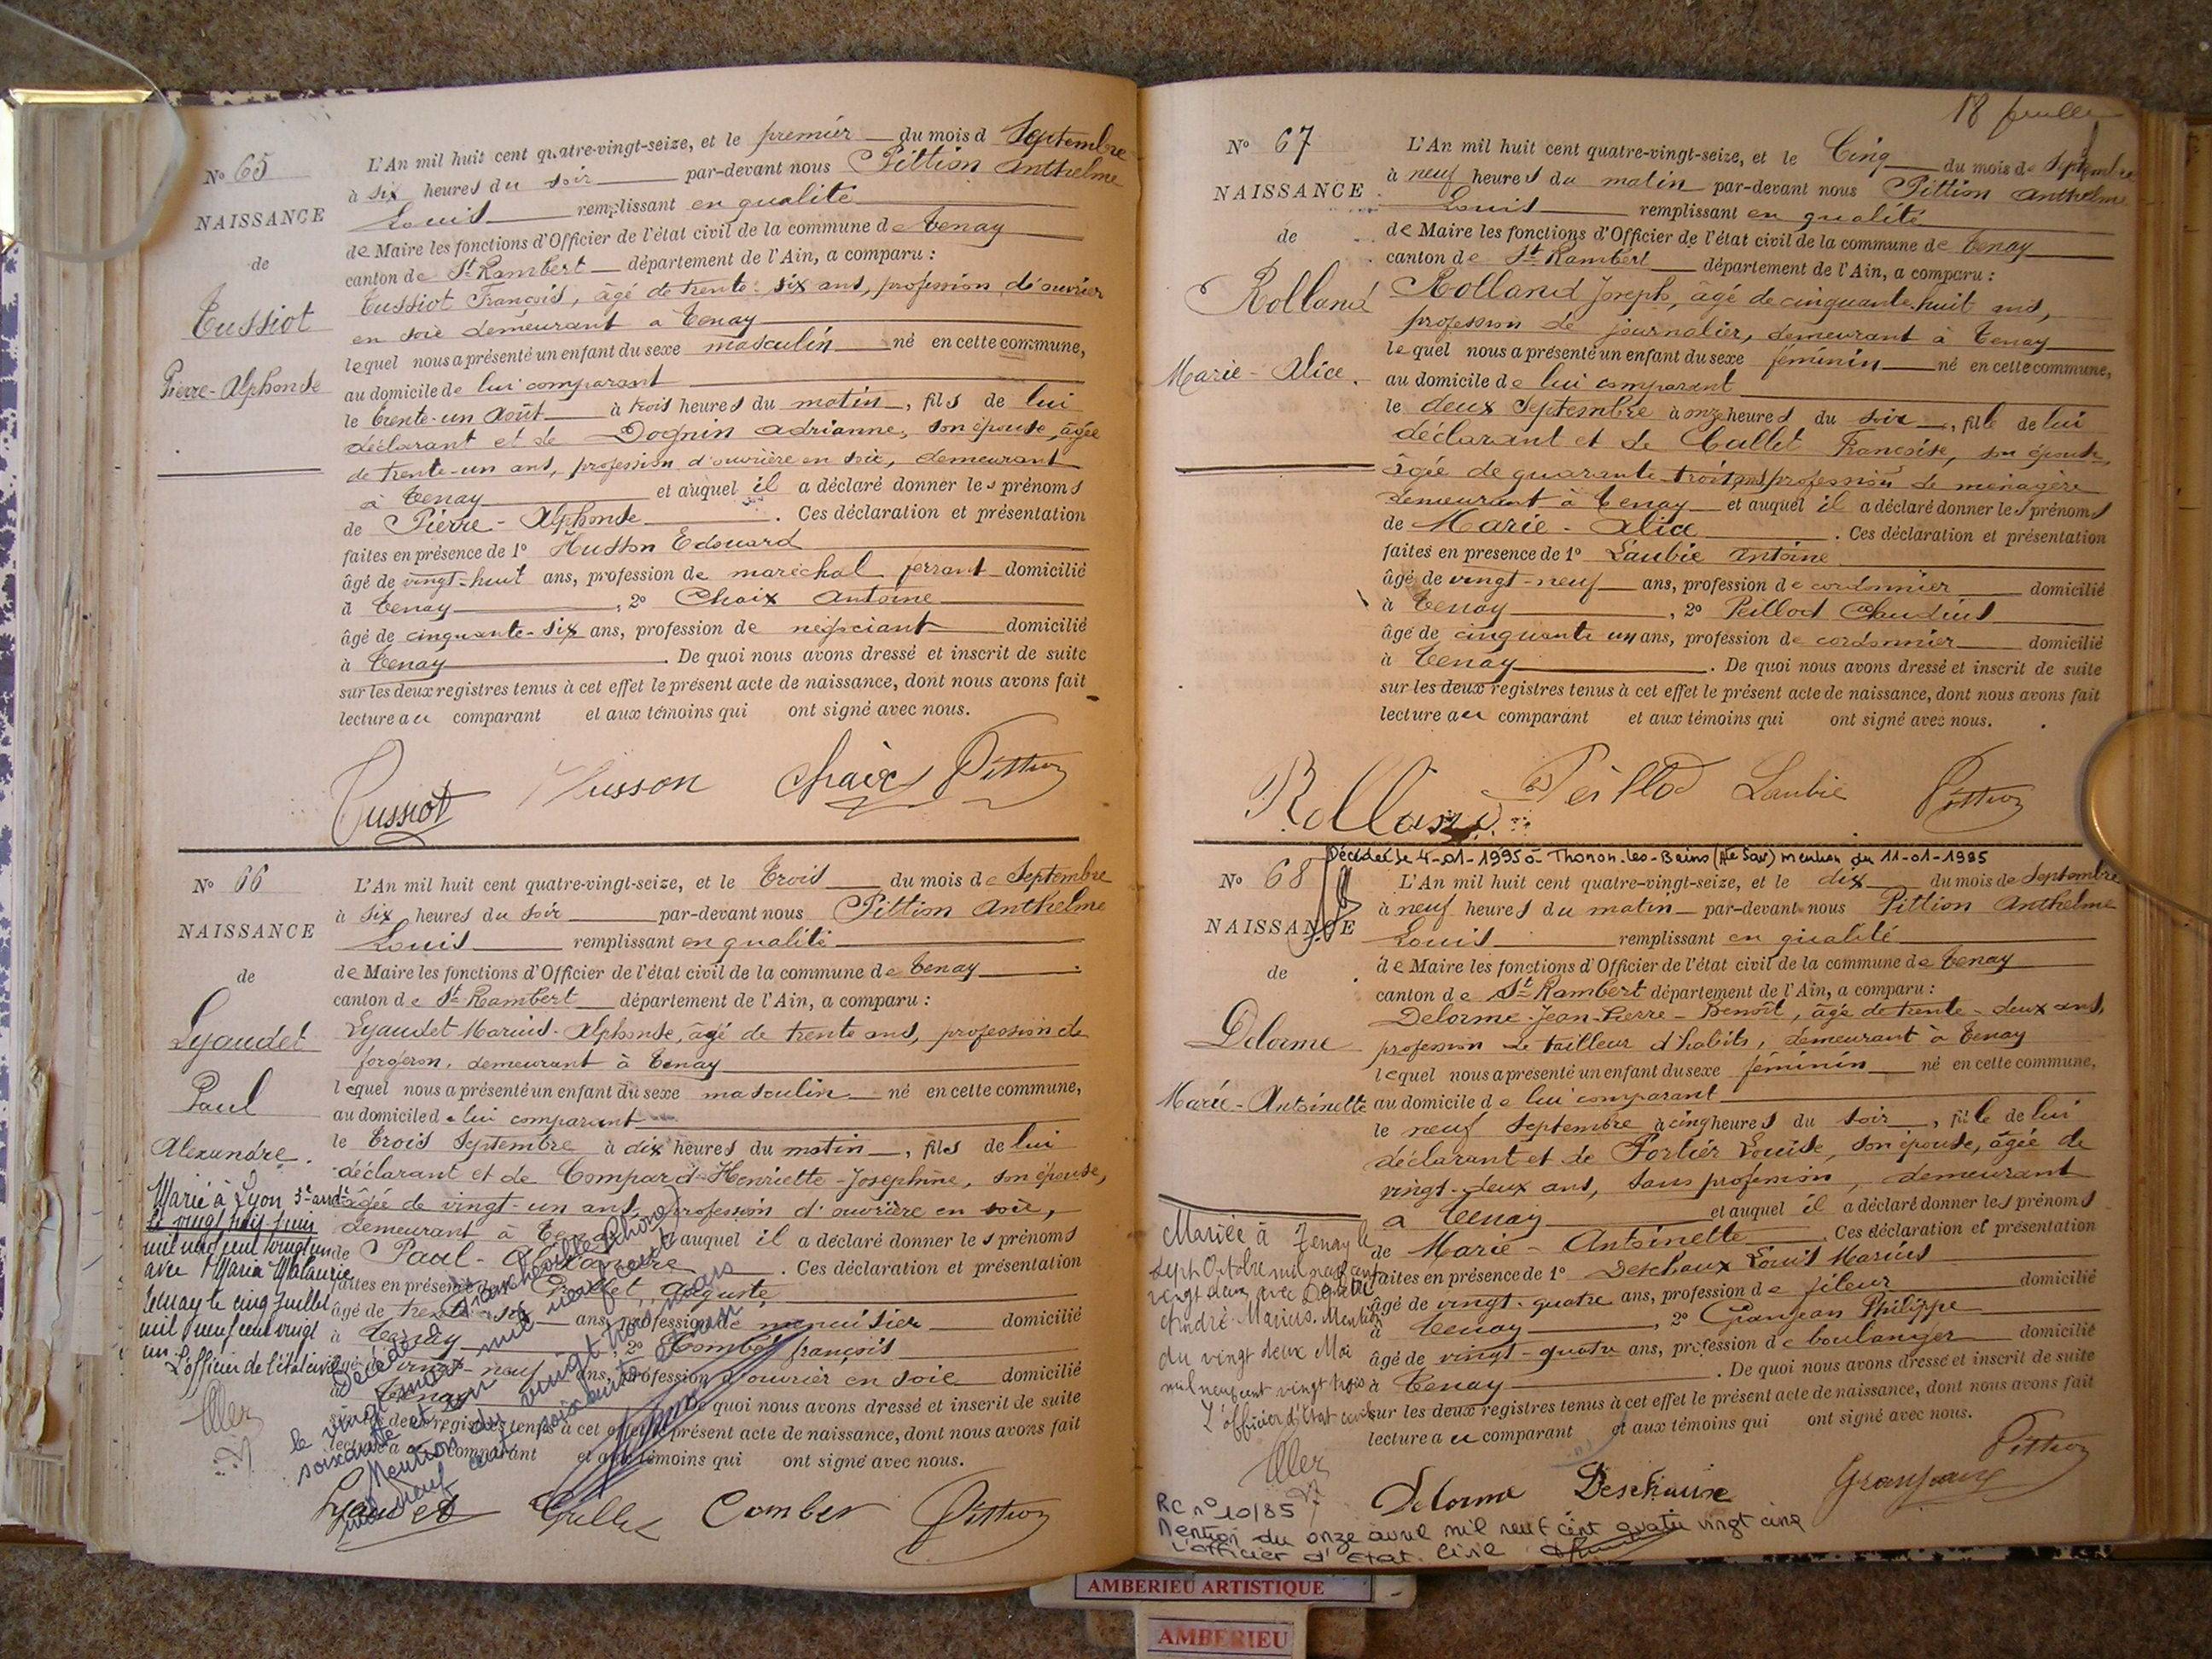 No 65
NAISSANCE
de
Tussiot
Pierre-Alphonse
L'An mil huit cent quatre-vingt-seize, et le premier du mois d Septembre
à six heures du soir par-devant nous Pittion Anthelme
Louis remplissant en qualité
de Maire les fonctions d'Officier de l'état civil de la commune de Tenay
canton de St Rambert département de l'Ain, a comparu :
Tussiot François, âgé de trente-six ans, profession d'ouvrier
en soie demeurant à Tenay
lequel nous a présenté un enfant du sexe masculin né en cette commune,
au domicile de lui comparant
le trente-un Août à trois heures du matin, fils de lui
déclarant et de Dognin Adrianne, son épouse, âgée
de trente-un ans, profession d'ouvrière en soie, demeurant
à Tenay et auquel il a déclaré donner les prénoms
de Pierre-Alphonse. Ces déclaration et présentation
faites en présence de 1o Husson Edouard
âgé de vingt-huit ans, profession de maréchal ferrant domicilié
à Tenay, 2o Chaix Antoine
âgé de cinquante-six ans, profession de négociant domicilié
à Tenay. De quoi nous avons dressé et inscrit de suite
sur les deux registres tenus à cet effet le présent acte de naissance, dont nous avons fait
lecture au comparant et aux témoins qui ont signé avec nous.
Tussiot Husson Chaix Pittion
No 66
NAISSANCE
de
Lyaudet
Paul
Alexandre.
L'An mil huit cent quatre-vingt-seize, et le trois du mois de Septembre
à six heures du soir par-devant nous Pittion Anthelme
Louis remplissant en qualité
de Maire les fonctions d'Officier de l'état civil de la commune de Tenay
canton de St Rambert département de l'Ain, a comparu :
Lyaudet Marius-Alphonse, âgé de trente ans, profession de
forgeron, demeurant à Tenay
lequel nous a présenté un enfant du sexe masculin né en cette commune,
au domicile de lui comparant
le trois Septembre à dix heures du matin, fils de lui
déclarant et de Compard Henriette-Josephine, son épouse,
âgée de vingt-un ans, profession d'ouvrière en soie,
demeurant à Tenay et auquel il a déclaré donner les prénoms
de Paul-Alexandre. Ces déclaration et présentation
faites en présence de Auguste
âgé de ans, profession de menuisier domicilié
à Tenay, 2o Comber françois
âgé de vingt-neuf ans, profession d'ouvrier en soie domicilié
à Tenay. De quoi nous avons dressé et inscrit de suite
sur les deux registres tenus à cet effet le présent acte de naissance, dont nous avons fait
lecture au comparant et aux témoins qui ont signé avec nous.
Marié à Lyon 3e arrdt
le vingt trois juin
mil neuf cent vingt un
avec Maria Malaurie
Tenay le cinq Juillet
mil neuf cent vingt
un
L'officier de l'état civil
Décédé à (Rhône)
le vingt mars mil neuf cent
soixante et un
Mention du vingt-trois mars
mil neuf cent soixante et un
Lyaudet Comber Pittion
18 feuillet
No 67
NAISSANCE
de
Rolland
Marie-Alice.
L'An mil huit cent quatre-vingt-seize, et le Cinq du mois de Septembre
à neuf heures du matin par-devant nous Pittion Anthelme
Louis remplissant en qualité
de Maire les fonctions d'Officier de l'état civil de la commune de Tenay
canton de St Rambert département de l'Ain, a comparu :
Rolland Joseph, âgé de cinquante-huit ans,
profession de journalier, demeurant à Tenay
lequel nous a présenté un enfant du sexe féminin né en cette commune,
au domicile de lui comparant
le deux Septembre à onze heures du soir, fille de lui
déclarant et de Callet Françoise, son épouse,
âgée de quarante-trois ans, profession de ménagère
demeurant à Tenay et auquel il a déclaré donner les prénoms
de Marie-Alice. Ces déclaration et présentation
faites en présence de 1o Laubie Antoine
âgé de vingt-neuf ans, profession de cordonnier domicilié
à Tenay, 2o Peillod Claudius
âgé de cinquante un ans, profession de cordonnier domicilié
à Tenay. De quoi nous avons dressé et inscrit de suite
sur les deux registres tenus à cet effet le présent acte de naissance, dont nous avons fait
lecture au comparant et aux témoins qui ont signé avec nous.
Rolland Peillod Laubie Pittion
Décédée le 4-01-1985 à Thonon-les-Bains (Hte Sav) mention du 11-01-1985
No 68
NAISSANCE
de
Delorme
Marie-Antoinette
L'An mil huit cent quatre-vingt-seize, et le dix du mois de Septembre
à neuf heures du matin par-devant nous Pittion Anthelme
Louis remplissant en qualité
de Maire les fonctions d'Officier de l'état civil de la commune de Tenay
canton de St Rambert département de l'Ain, a comparu :
Delorme Jean-Pierre-Benoît, âgé de trente-deux ans,
profession de tailleur d'habits, demeurant à Tenay
lequel nous a présenté un enfant du sexe féminin né en cette commune,
au domicile de lui comparant
le neuf Septembre à cinq heures du soir, fille de lui
déclarant et de Portier Louise, son épouse, âgée de
vingt-deux ans, sans profession, demeurant
à Tenay et auquel il a déclaré donner les prénoms
de Marie-Antoinette. Ces déclaration et présentation
faites en présence de 1o Deschaux Louis Marius
âgé de vingt-quatre ans, profession de fileur domicilié
à Tenay, 2o Granjean Philippe
âgé de vingt-quatre ans, profession de boulanger domicilié
à Tenay. De quoi nous avons dressé et inscrit de suite
sur les deux registres tenus à cet effet le présent acte de naissance, dont nous avons fait
lecture au comparant et aux témoins qui ont signé avec nous.
Mariée à Tenay le
sept Octobre mil neuf cent
vingt deux avec
André-Marius. Mention
du vingt deux Mai
mil neuf cent vingt trois
L'officier d'état civil
Delorme Deschaux Granjean Pittion
RC no 10/85
Mention du onze avril mil neuf cent quatre vingt cinq
L'officier d'Etat Civil
AMBERIEU ARTISTIQUE
AMBERIEU